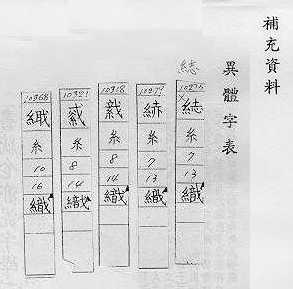 補充資料
異體字表
綕
10275
綕
糸
7
13
織
10277
糸
7
13
織
10318
糸
8
14
織
10321
糸
8
14
織
10368
糸
10
16
織